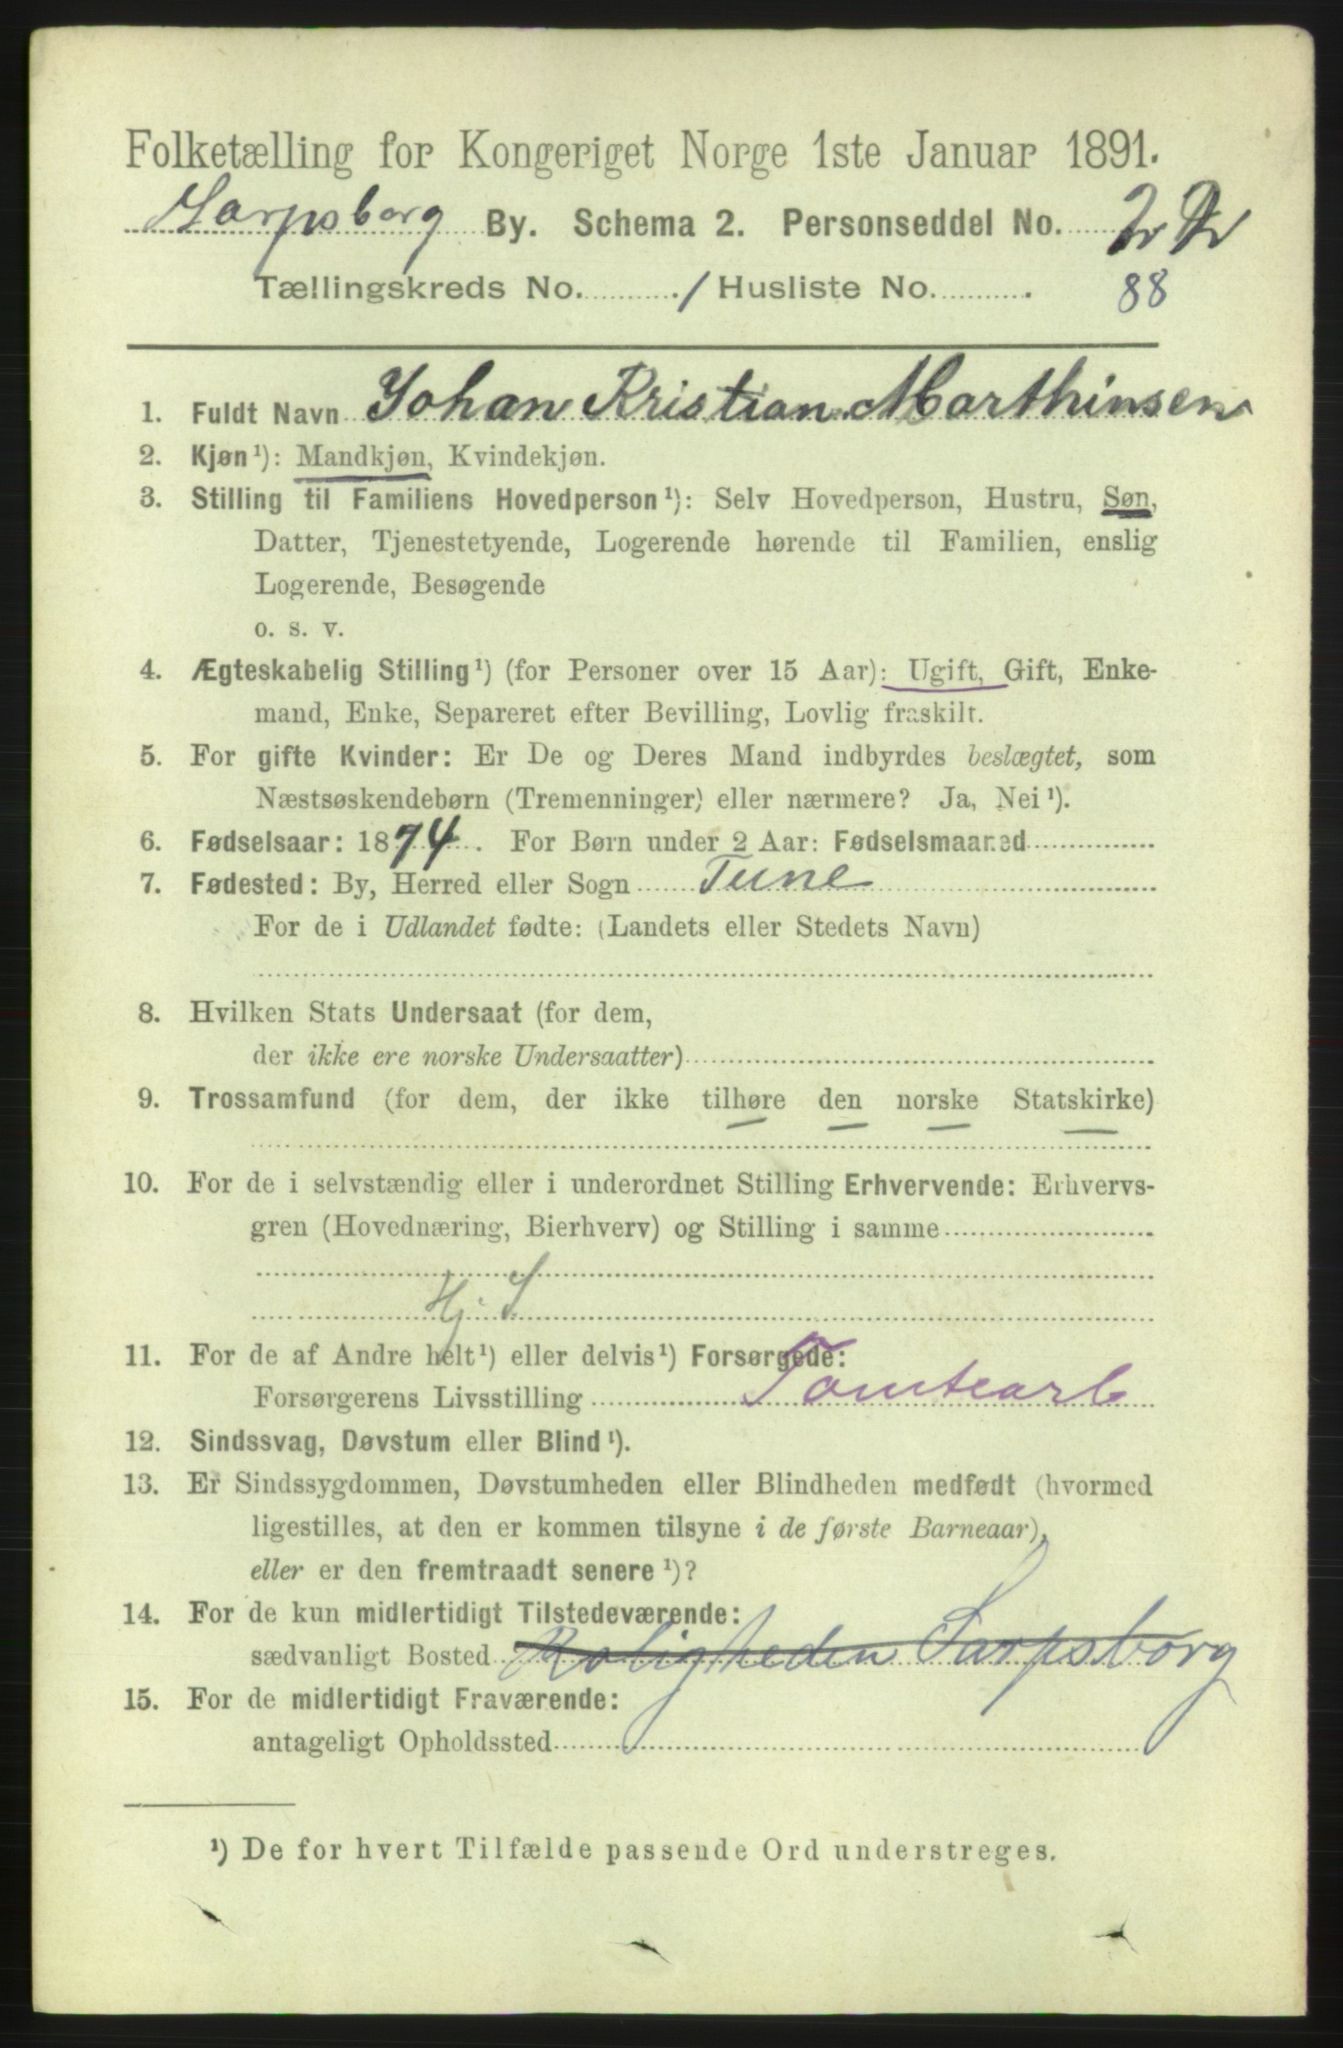 Folketælling for Kongeriget Norge 1ste Januar 1891.
Sarpsborg By. Schema 2. Personseddel No. 22
Tællingskreds No. 1 Husliste No. 88
1. Fuldt Navn Johan Kristian Marthinsen
2. Kjøn¹): Mandkjøn, Kvindekjøn.
3. Stilling til Familiens Hovedperson¹): Selv Hovedperson, Hustru, Søn,
Datter, Tjenestetyende, Logerende hørende til Familien, enslig
Logerende, Besøgende
o. s. v.
4. Ægteskabelig Stilling¹) (for Personer over 15 Aar): Ugift, Gift, Enke-
mand, Enke, Separeret efter Bevilling, Lovlig fraskilt.
5. For gifte Kvinder: Er De og Deres Mand indbyrdes beslægtet, som
Næstsøskendebørn (Tremenninger) eller nærmere? Ja, Nei¹).
6. Fødselsaar: 1874. For Børn under 2 Aar: Fødselsmaaned
7. Fødested: By, Herred eller Sogn Tune
For de i Udlandet fødte: (Landets eller Stedets Navn)
8. Hvilken Stats Undersaat (for dem,
der ikke ere norske Undersaatter)
9. Trossamfund (for dem, der ikke tilhøre den norske Statskirke)
10. For de i selvstændig eller i underordnet Stilling Erhvervende: Erhvervs-
gren (Hovednæring, Bierhverv) og Stilling i samme
Hj. S
11. For de af Andre helt¹) eller delvis¹) Forsørgede:
Forsørgerens Livsstilling Tomtearb
12. Sindssvag, Døvstum eller Blind¹).
13. Er Sindssygdommen, Døvstumheden eller Blindheden medfødt (hvormed
ligestilles, at den er kommen tilsyne i de første Barneaar),
eller er den fremtraadt senere¹)?
14. For de kun midlertidigt Tilstedeværende:
sædvanligt Bosted Roligheden Sarpsborg
15. For de midlertidigt Fraværende:
antageligt Opholdssted
¹) De for hvert Tilfælde passende Ord understreges.